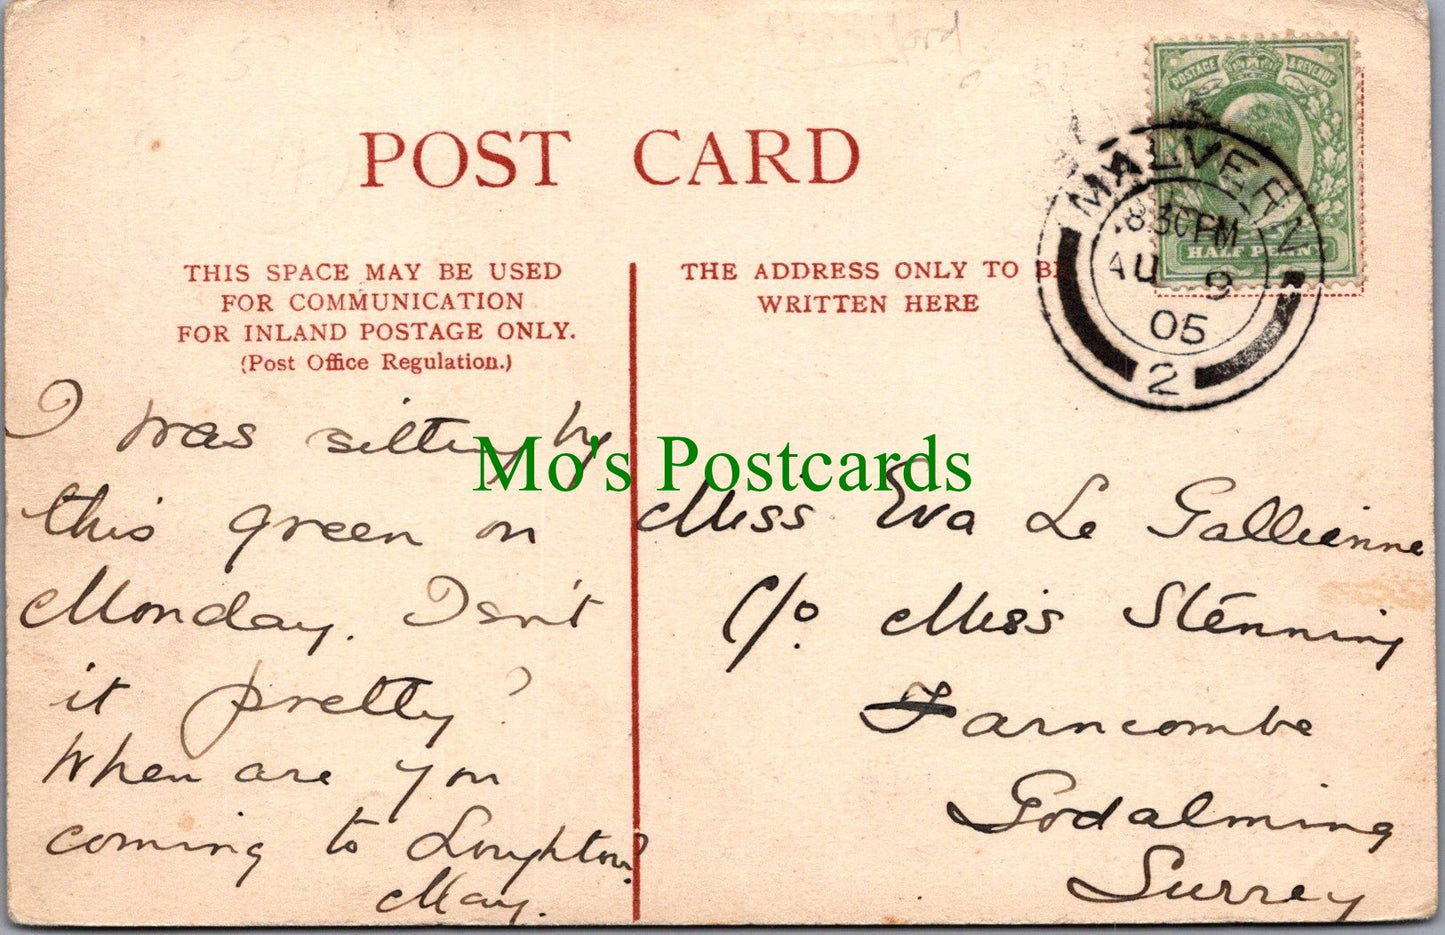 POST CARD
THIS SPACE MAY BE USED
FOR COMMUNICATION
FOR INLAND POSTAGE ONLY.
(Post Office Regulation.)
THE ADDRESS ONLY TO BE
WRITTEN HERE
POSTAGE & REVENUE
HALF PENNY
MALVERN
8.30PM
AU 9
05
2
I was sitting by
this green on
Monday. Isn't
it pretty?
When are you
coming to Loughton?
May.
Mo's Postcards
Miss Eva Le Gallienne
c/o. Miss Stenning
Farncombe
Godalming
Surrey